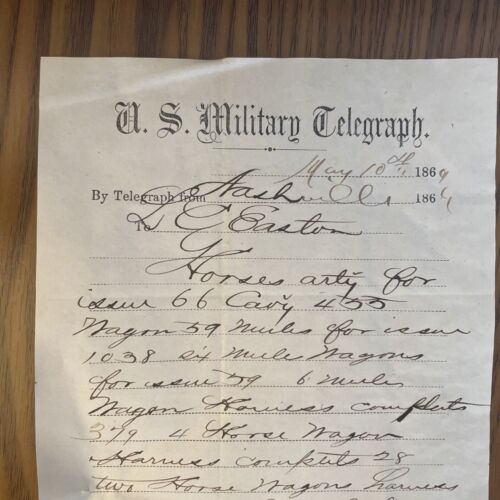 U. S. Military Telegraph.
May 10th 1864
By Telegraph from Nashville 186
To L C Easton
Horses arty for
issue 66 Cavy 455
Wagon 59 Mules for issue
1038 six Mule Wagons
for issue 59 6 Mule
Wagon Harness complete
379 4 Horse Wagon
Harness complete 28
two Horse Wagons harness